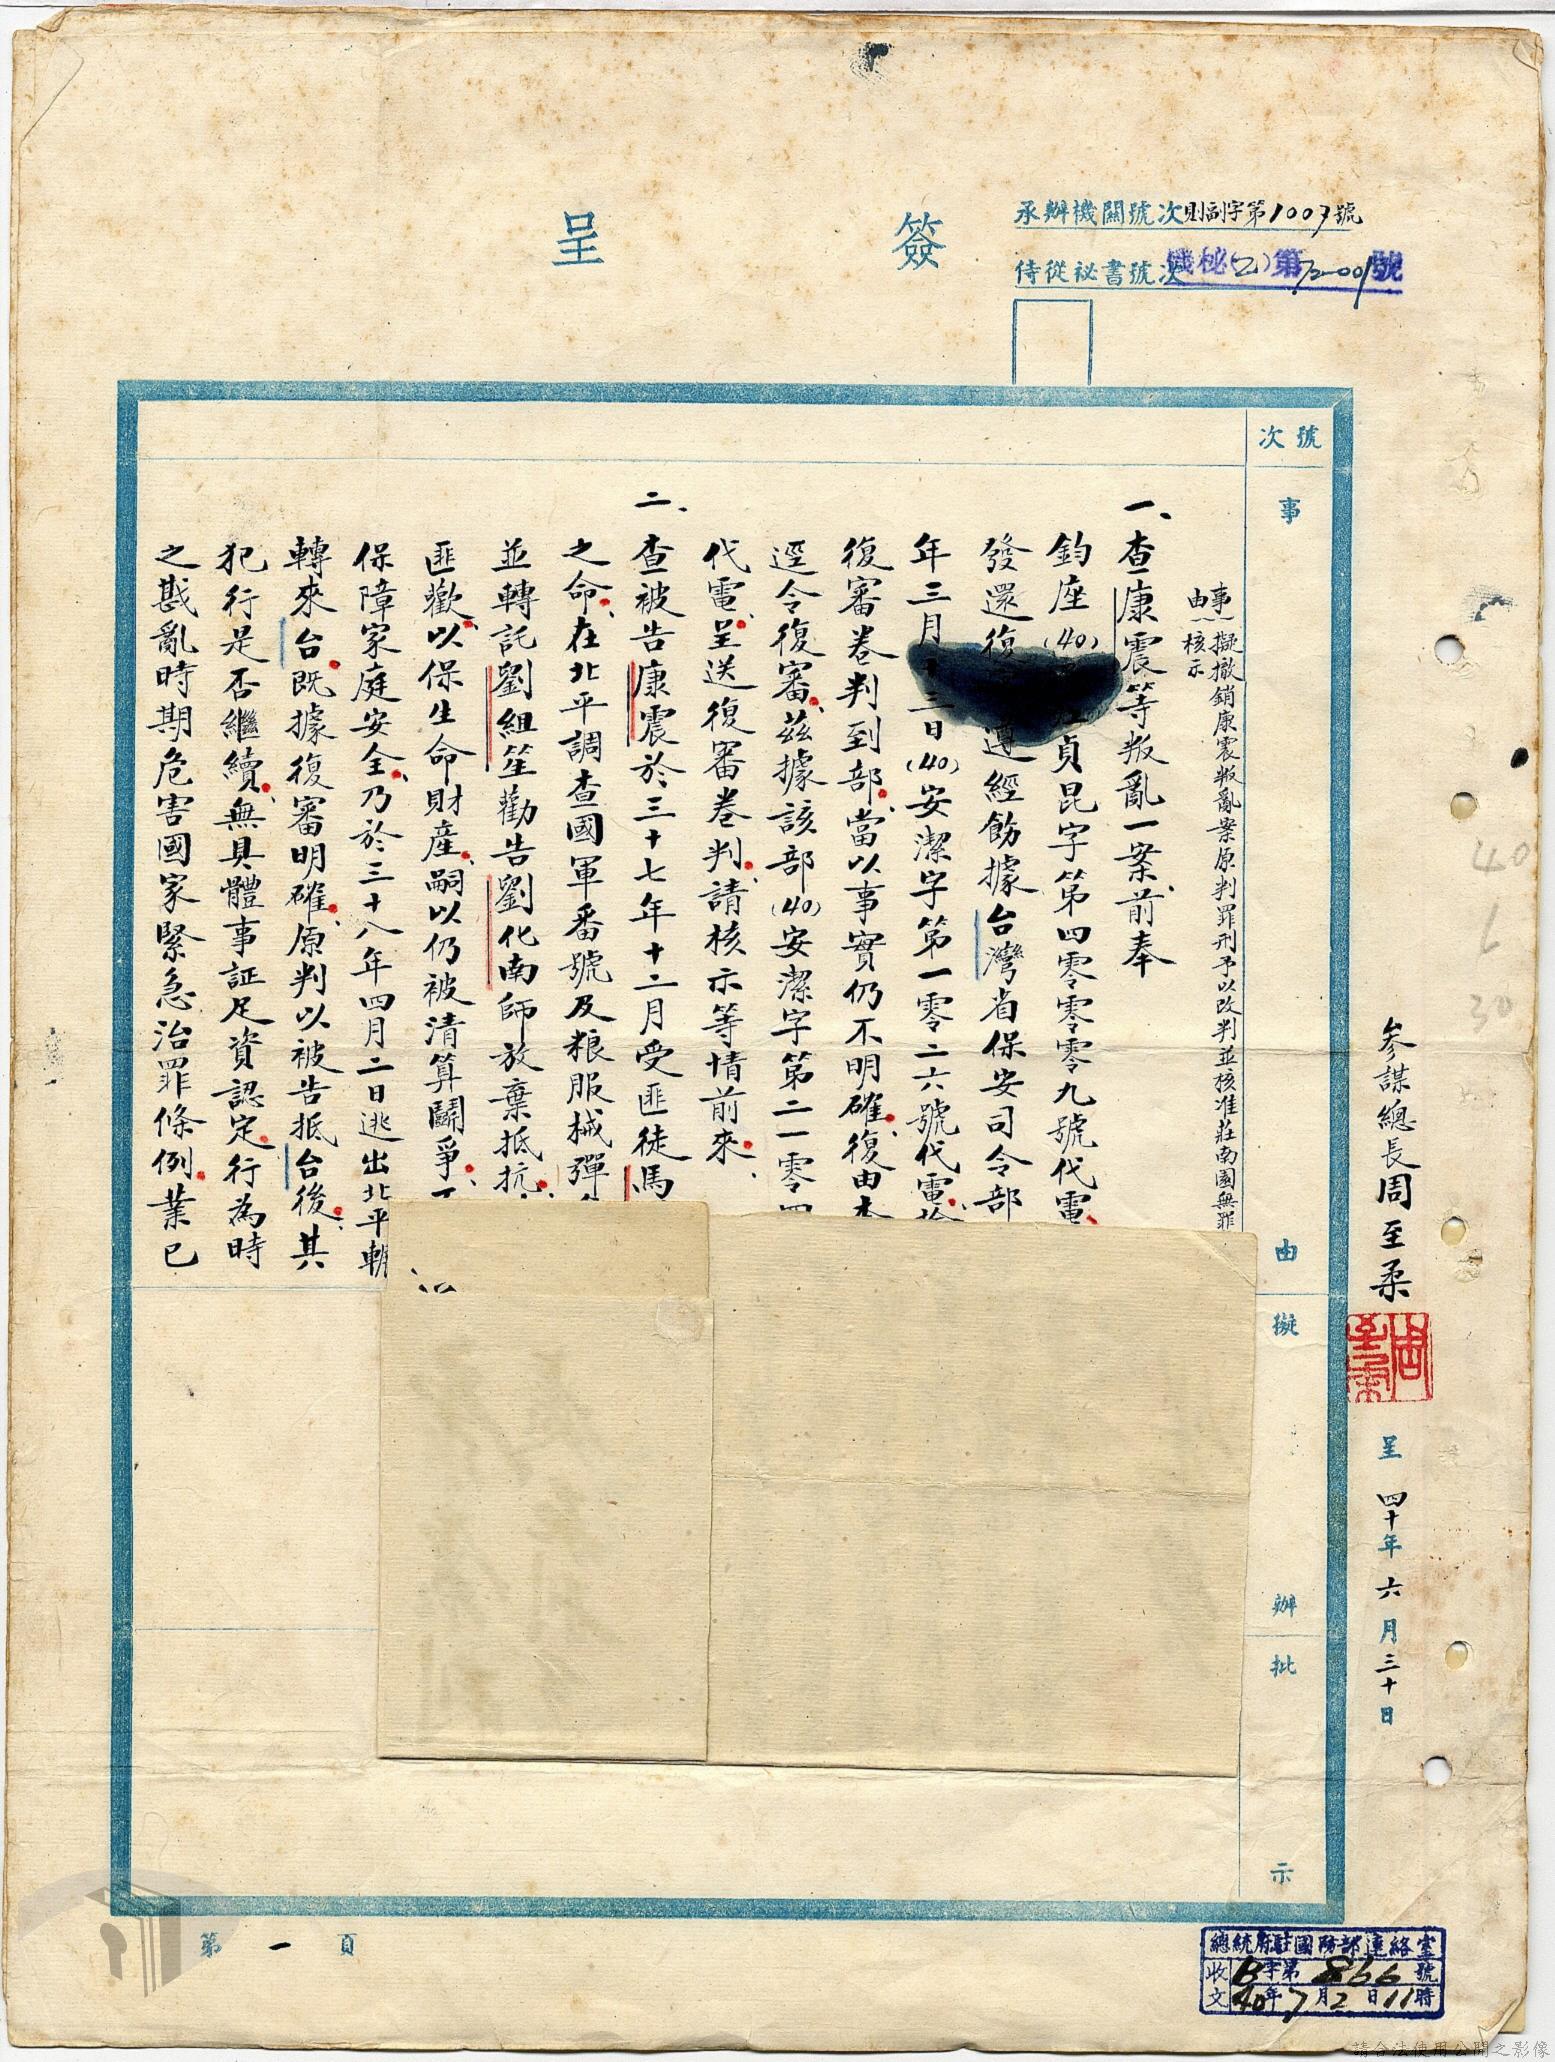 簽呈
承辦機關號次則副字第1007號
侍從祕書號次機秘(乙)第72-001號
號次
事由
擬辦
批示
參謀總長周至柔
周至柔
呈 四十年六月三十日
事由:擬撤銷康震叛亂案原判罪刑予以改判並核准莊南國無罪
核示
一、查康震等叛亂一案前奉
鈞座(40)貞昆字第四零零零九號代電
發還復遵經飭據台灣省保安司令部
年三月十三日(40)安潔字第一零二六號代電
復審卷判到部當以事實仍不明確復由本
逕令復審茲據該部(40)安潔字第二一零四
代電呈送復審卷判請核示等情前來
二、查被告康震於三十七年十二月受匪徒馬
之命在北平調查國軍番號及粮服械彈
並轉託劉組笙勸告劉化南師放棄抵抗
匪歡以保生命財產嗣以仍被清算鬪爭
保障家庭安全乃於三十八年四月二日逃出北平輾
轉來台既據復審明確原判以被告抵台後其
犯行是否繼續無具體事証足資認定行為時
之戡亂時期危害國家緊急治罪條例業已
第一頁
總統府駐國防部連絡室
收文B字第866號
40年7月2日11時
40 6 30
請合法使用公開之影像